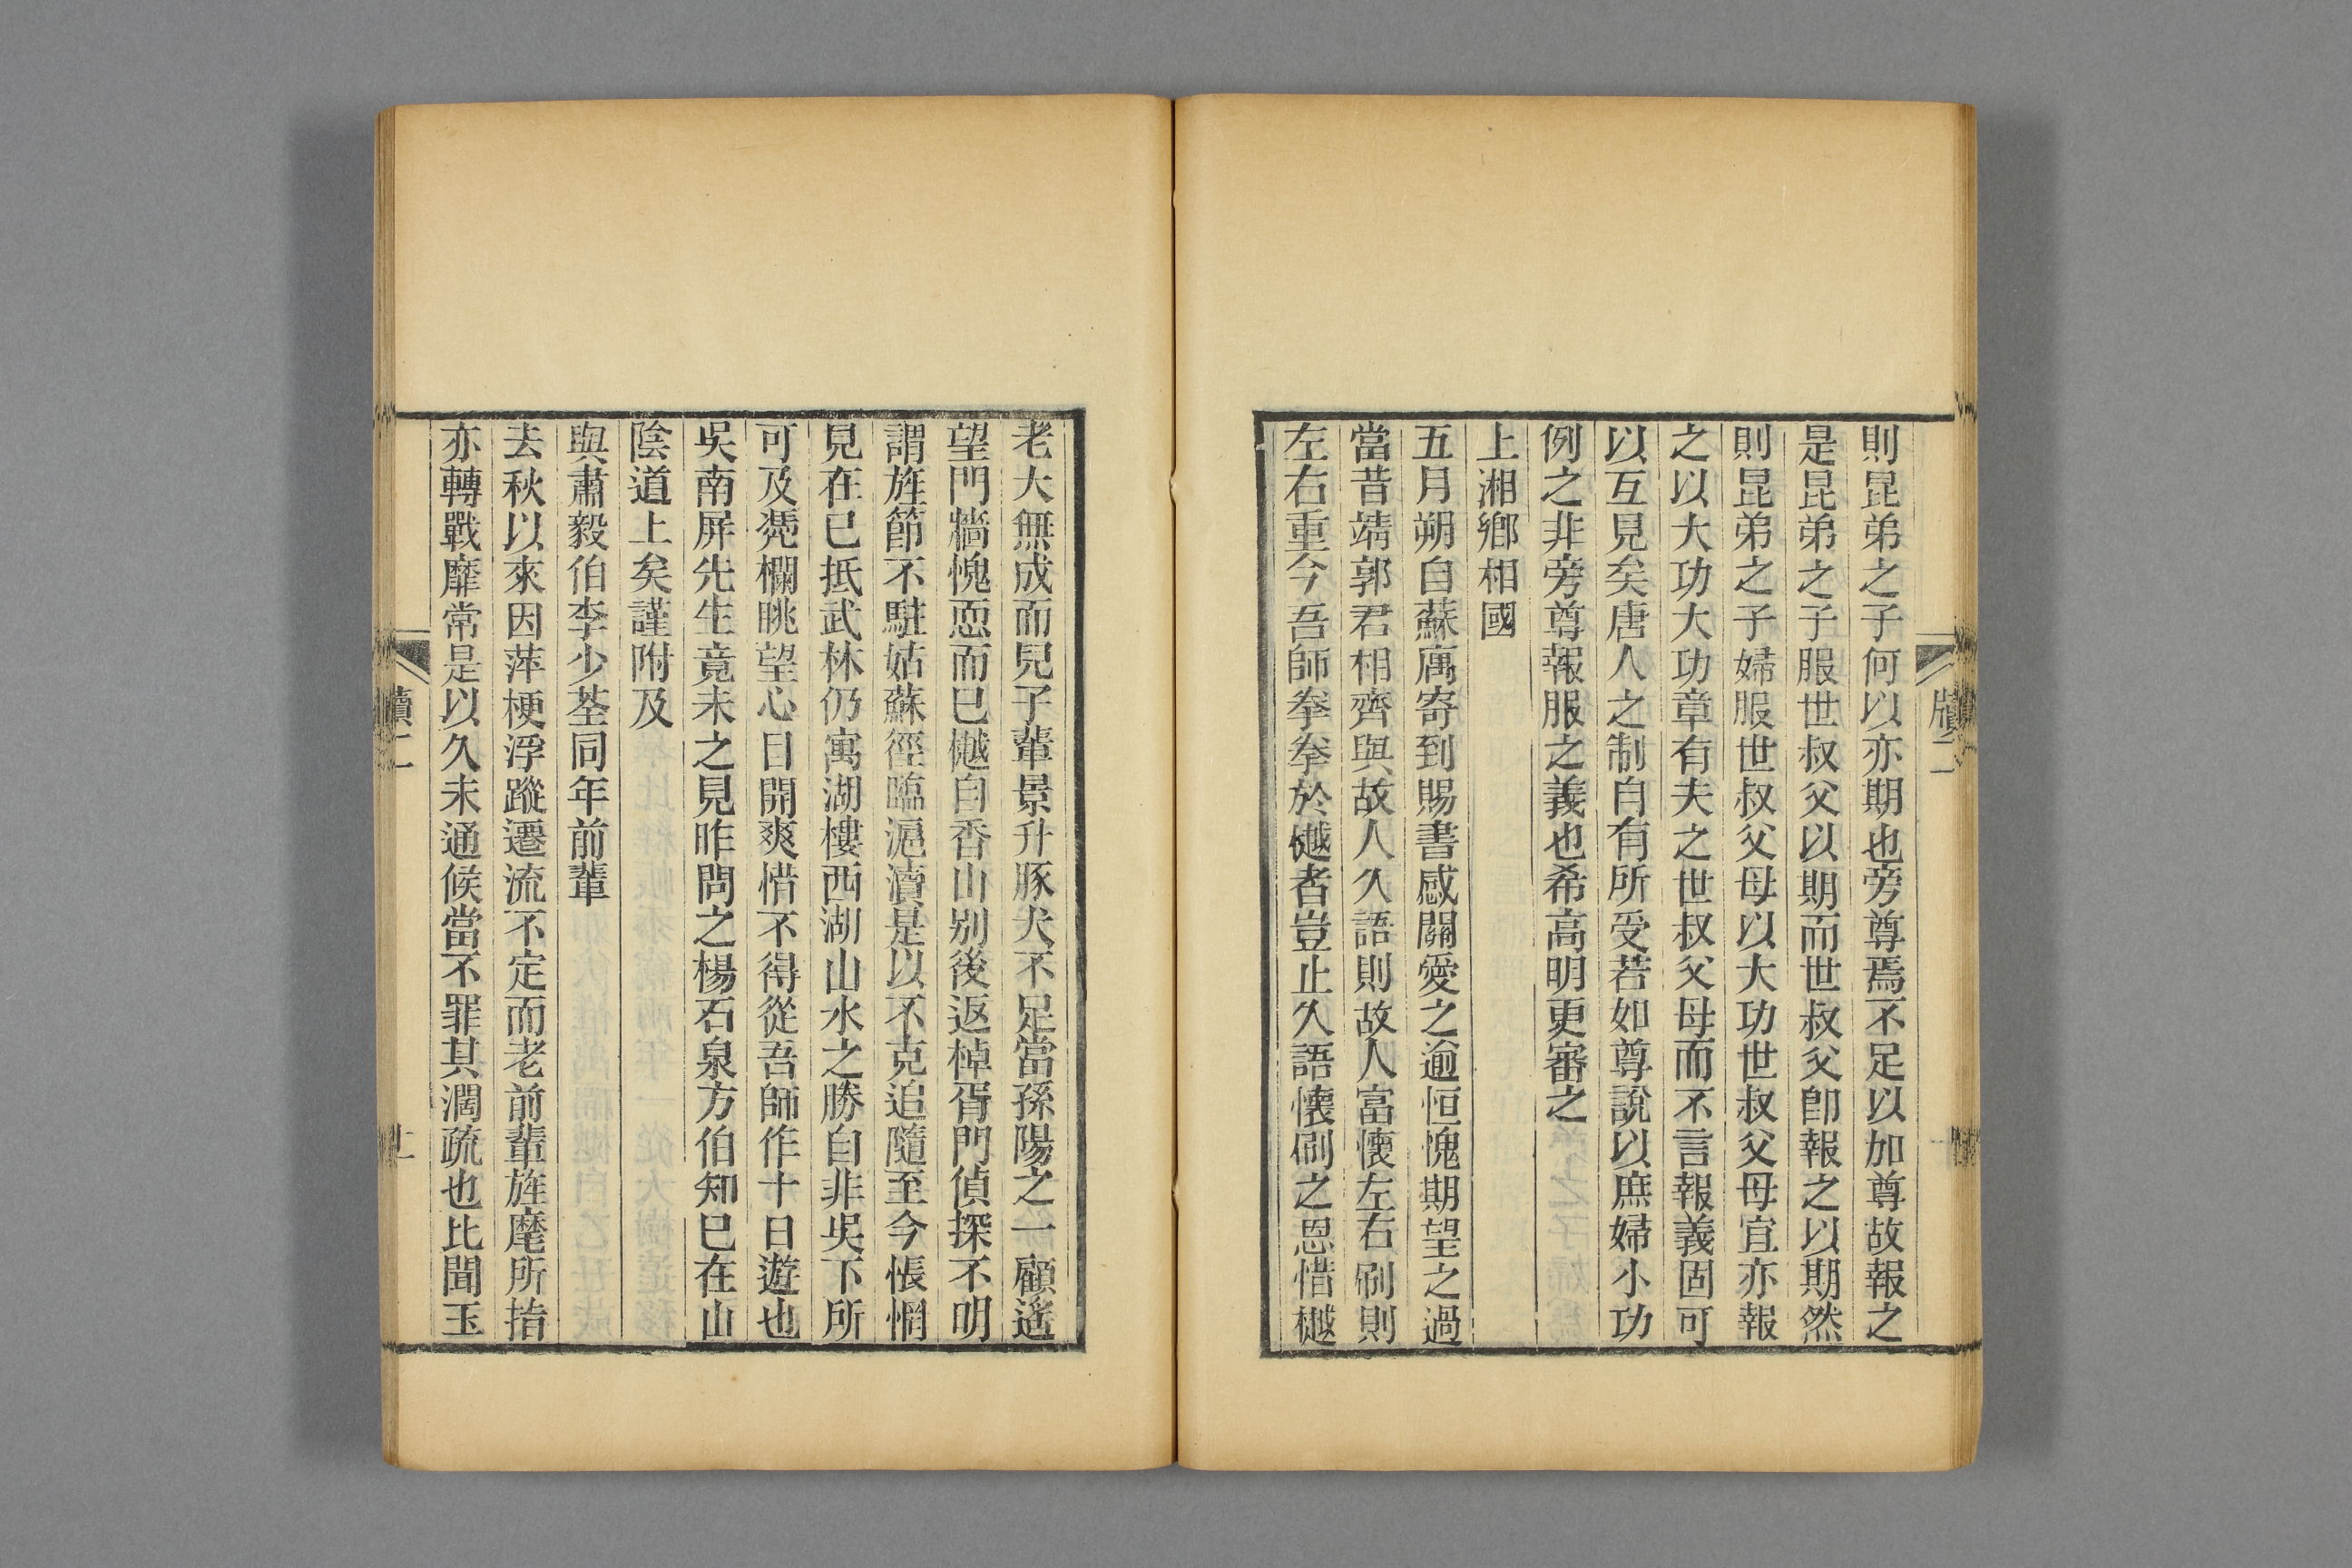 則昆弟之子何以亦期也旁尊焉不足以加尊故報之
是昆弟之子服世叔父以期而世叔父卽報之以期然
則昆弟之子婦服世叔父母以大功世叔父母宜亦報
之以大功大功章有夫之世叔父母而不言報義固可
以互見矣唐人之制自有所受若如尊說以庶婦小功
例之非旁尊報服之義也希高明更審之
上湘鄉相國
五月朔自蘇寓寄到賜書感關愛之逾恒愧期望之過
當昔靖郭君相齊與故人久語則故人富懷左右刷則
左右重今吾師拳拳於樾者豈止久語懷刷之恩惜樾
老大無成而兒子輩景升豚犬不足當孫陽之一顧遙
望門牆愧恧而已樾自香山別後返棹胥門偵探不明
謂旌節不駐姑蘇徑臨滬瀆是以不克追隨至今悵惘
見在已抵武林仍寓湖樓西湖山水之勝自非吳下所
可及凴欄眺望心目開爽惜不得從吾師作十日遊也
吳南屏先生竟未之見昨問之楊石泉方伯知已在山
陰道上矣謹附及
與肅毅伯李少荃同年前輩
去秋以來因萍梗浮蹤遷流不定而老前輩旌麾所指
亦轉戰靡常是以久未通候當不罪其濶疏也比聞玉
牘二
牘二